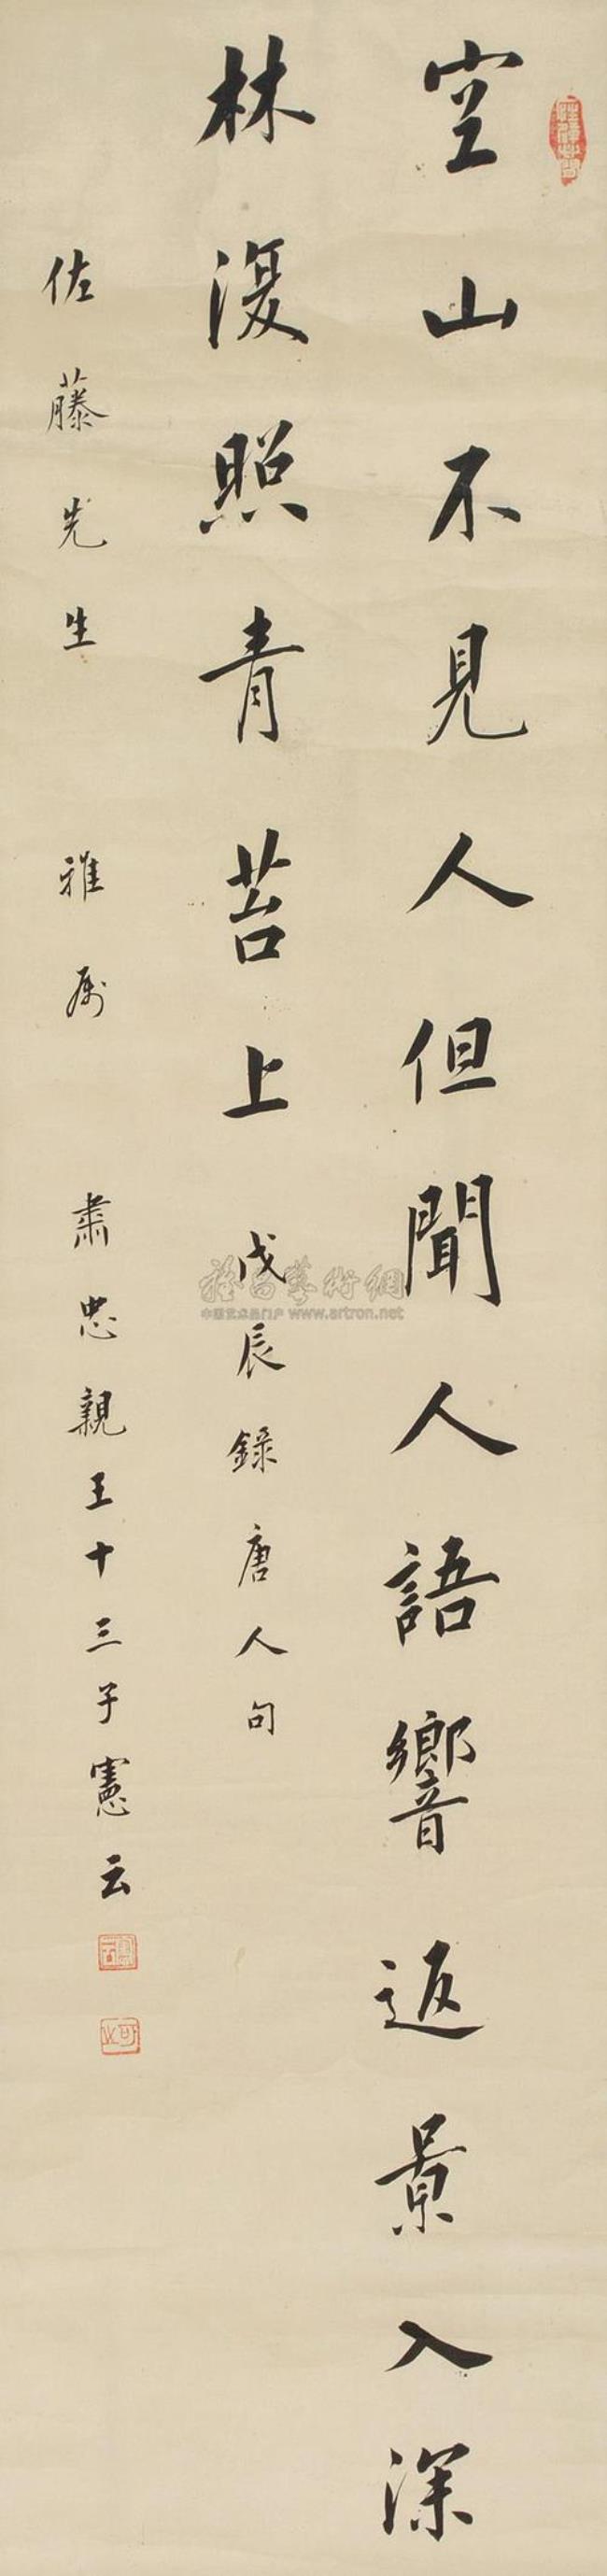 空山不見人但聞人語響返景入深
林復照青苔上 戊辰錄唐人句
佐藤先生 雅屬 肅忠親王十三子憲云
中国艺术品门户 www.artron.net